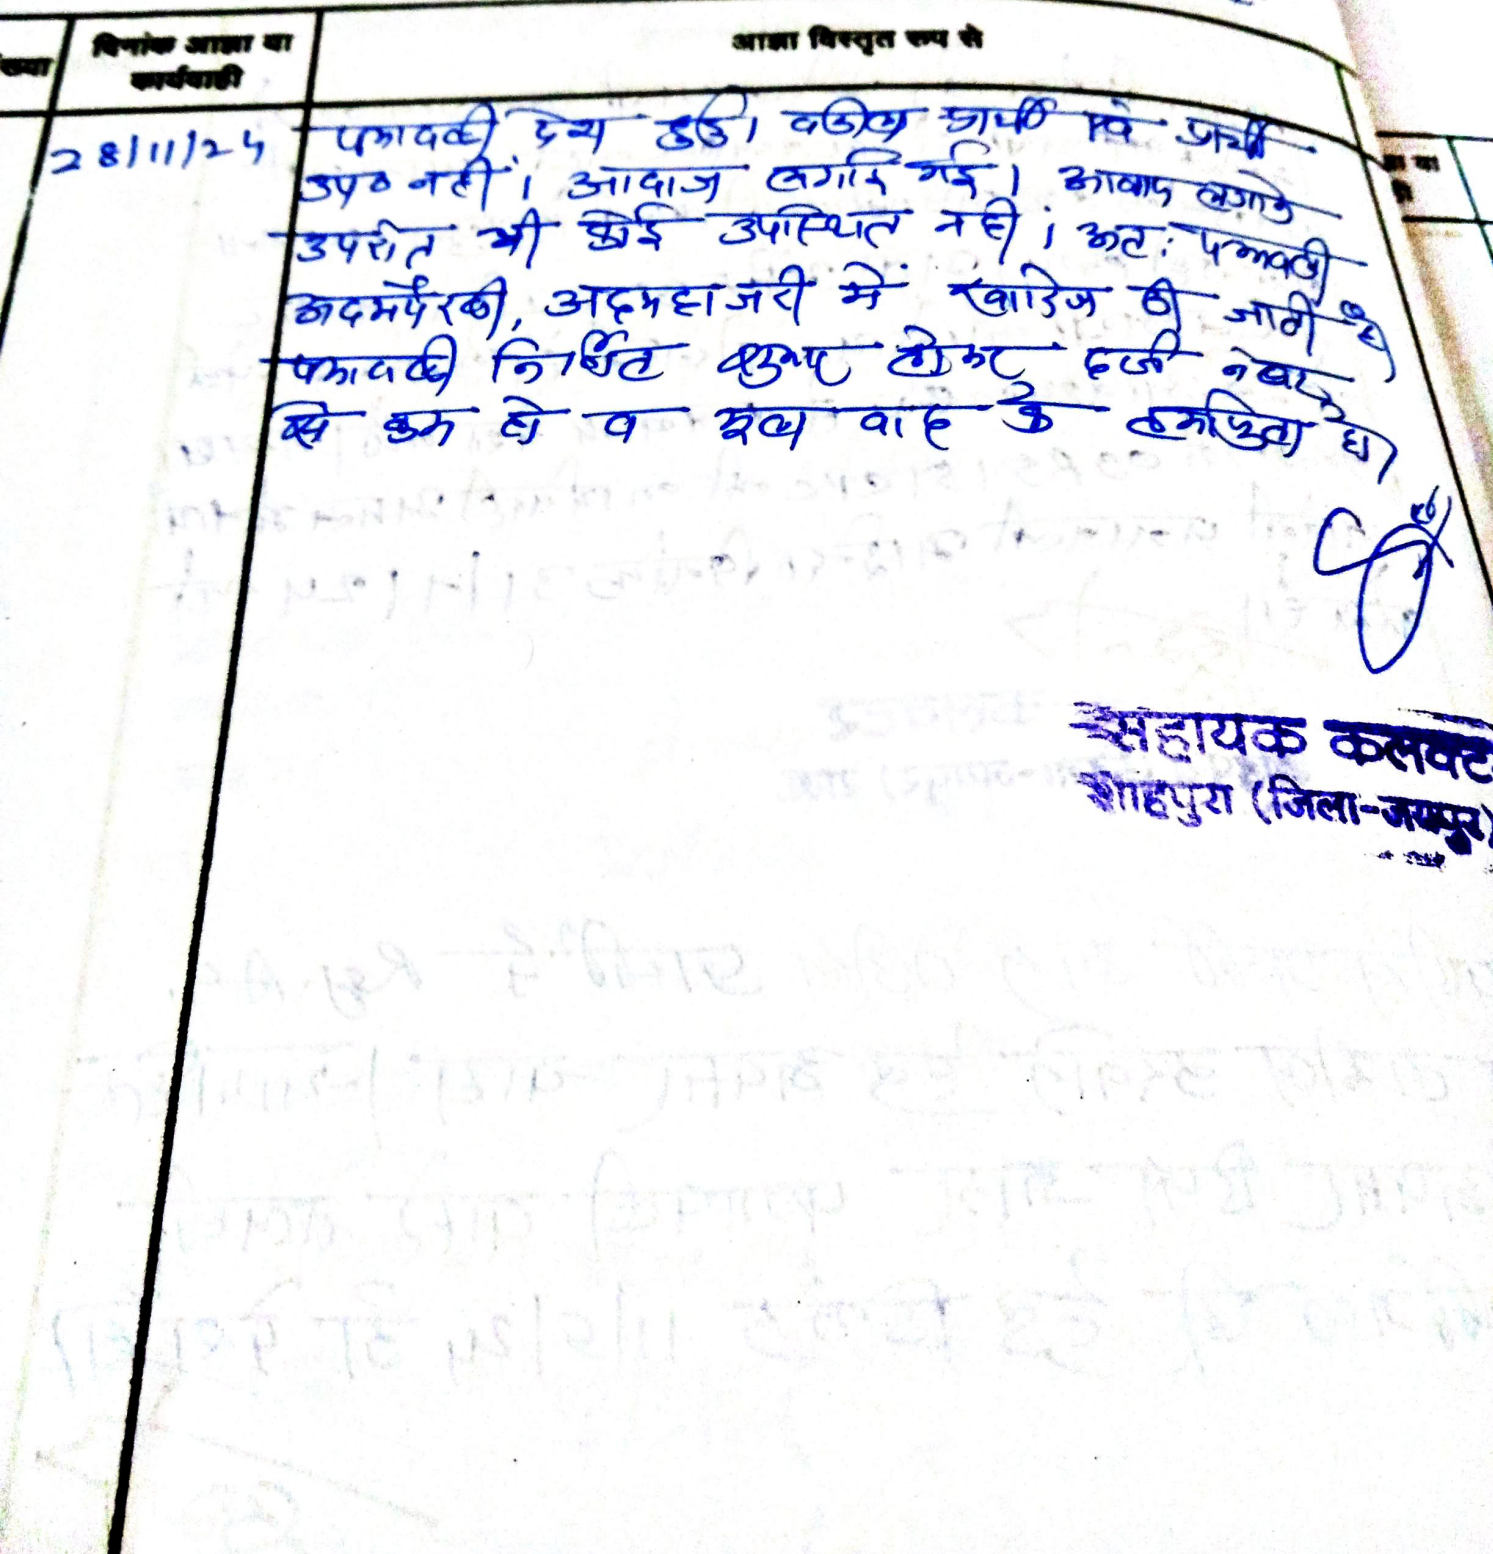 दिनांक आज्ञा या
कार्यवाही
आज्ञा विस्तृत रूप से
28/11/24
पत्रावली पेश हुई। वकील प्रार्थी एवं प्रार्थी
उप० नहीं। आवाज लगाई गई। आवाज लगाने
उपरांत भी कोई उपस्थित नहीं। अतः पत्रावली
अदमपैरवी, अदमहाजरी में खारिज की जाती है।
पत्रावली निर्णित शुमार होकर दर्ज नंबर
से कम हो व मूल वाद के हो।
सहायक कलक्टर
शाहपुरा (जिला-जयपुर)